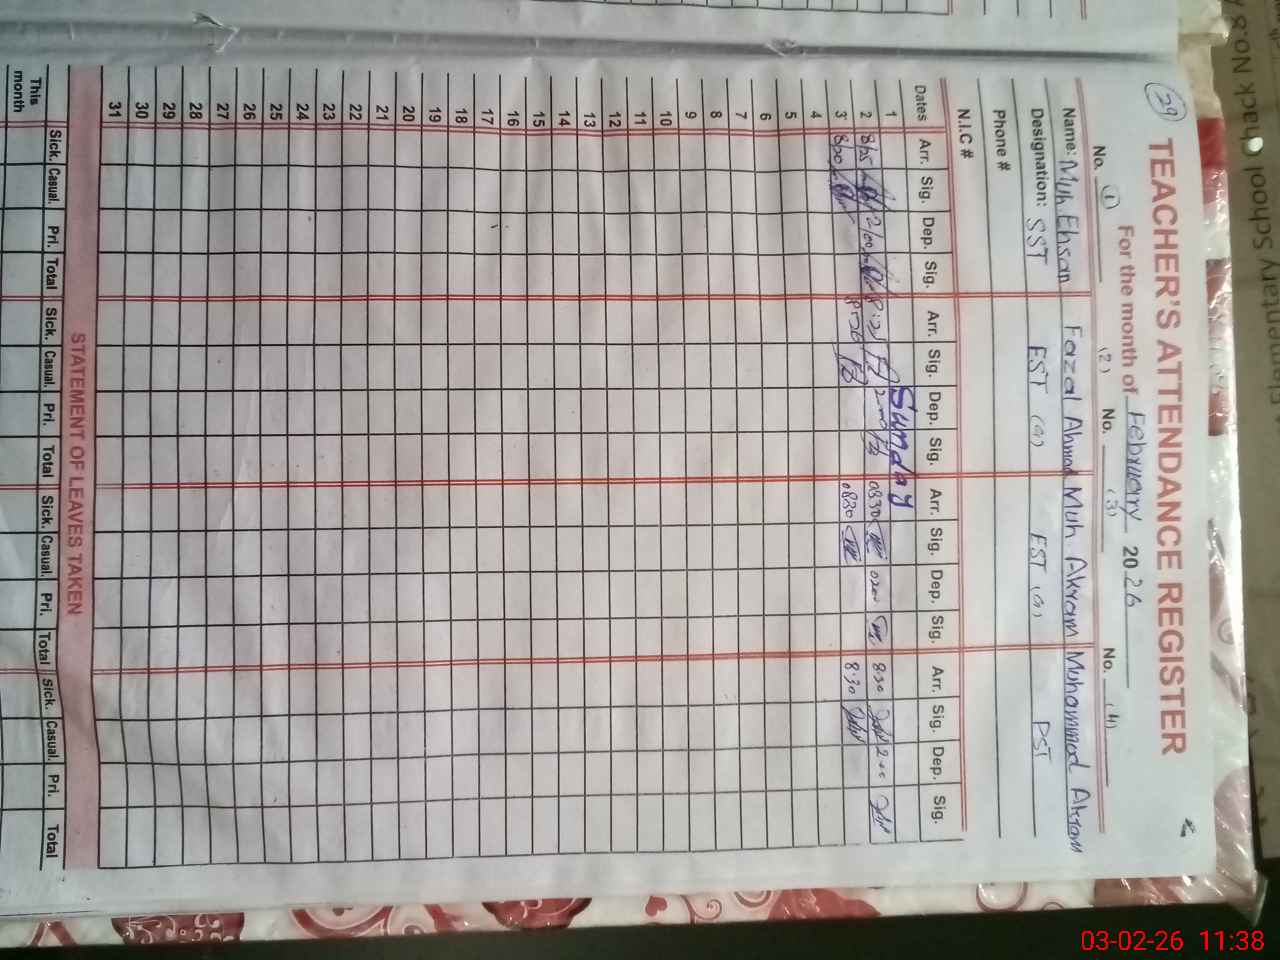 29
TEACHER'S ATTENDANCE REGISTER
For the month of February 2026
No. (1) (2) No. (3) No. (4)
Name: Muh Ehsan Fazal Ahmad Muh Akram Muhammad Akram
Designation: SST EST (a) EST (a) PST
Phone #
N.I.C #
Dates Arr. Sig. Dep. Sig. Arr. Sig. Dep. Sig. Arr. Sig. Dep. Sig. Arr. Sig. Dep. Sig.
1 Sunday
2 8/25 2/00 8:25 2:00 0830 0200 8:30 2:00
3 0830 8:30
4
5
6
7
8
9
10
11
12
13
14
15
16
17
18
19
20
21
22
23
24
25
26
27
28
29
30
31
STATEMENT OF LEAVES TAKEN
Sick. Casual. Pri. Total Sick. Casual. Pri. Total Sick. Casual. Pri. Total Sick. Casual. Pri. Total
This month
School Chack No.
03-02-26 11:38